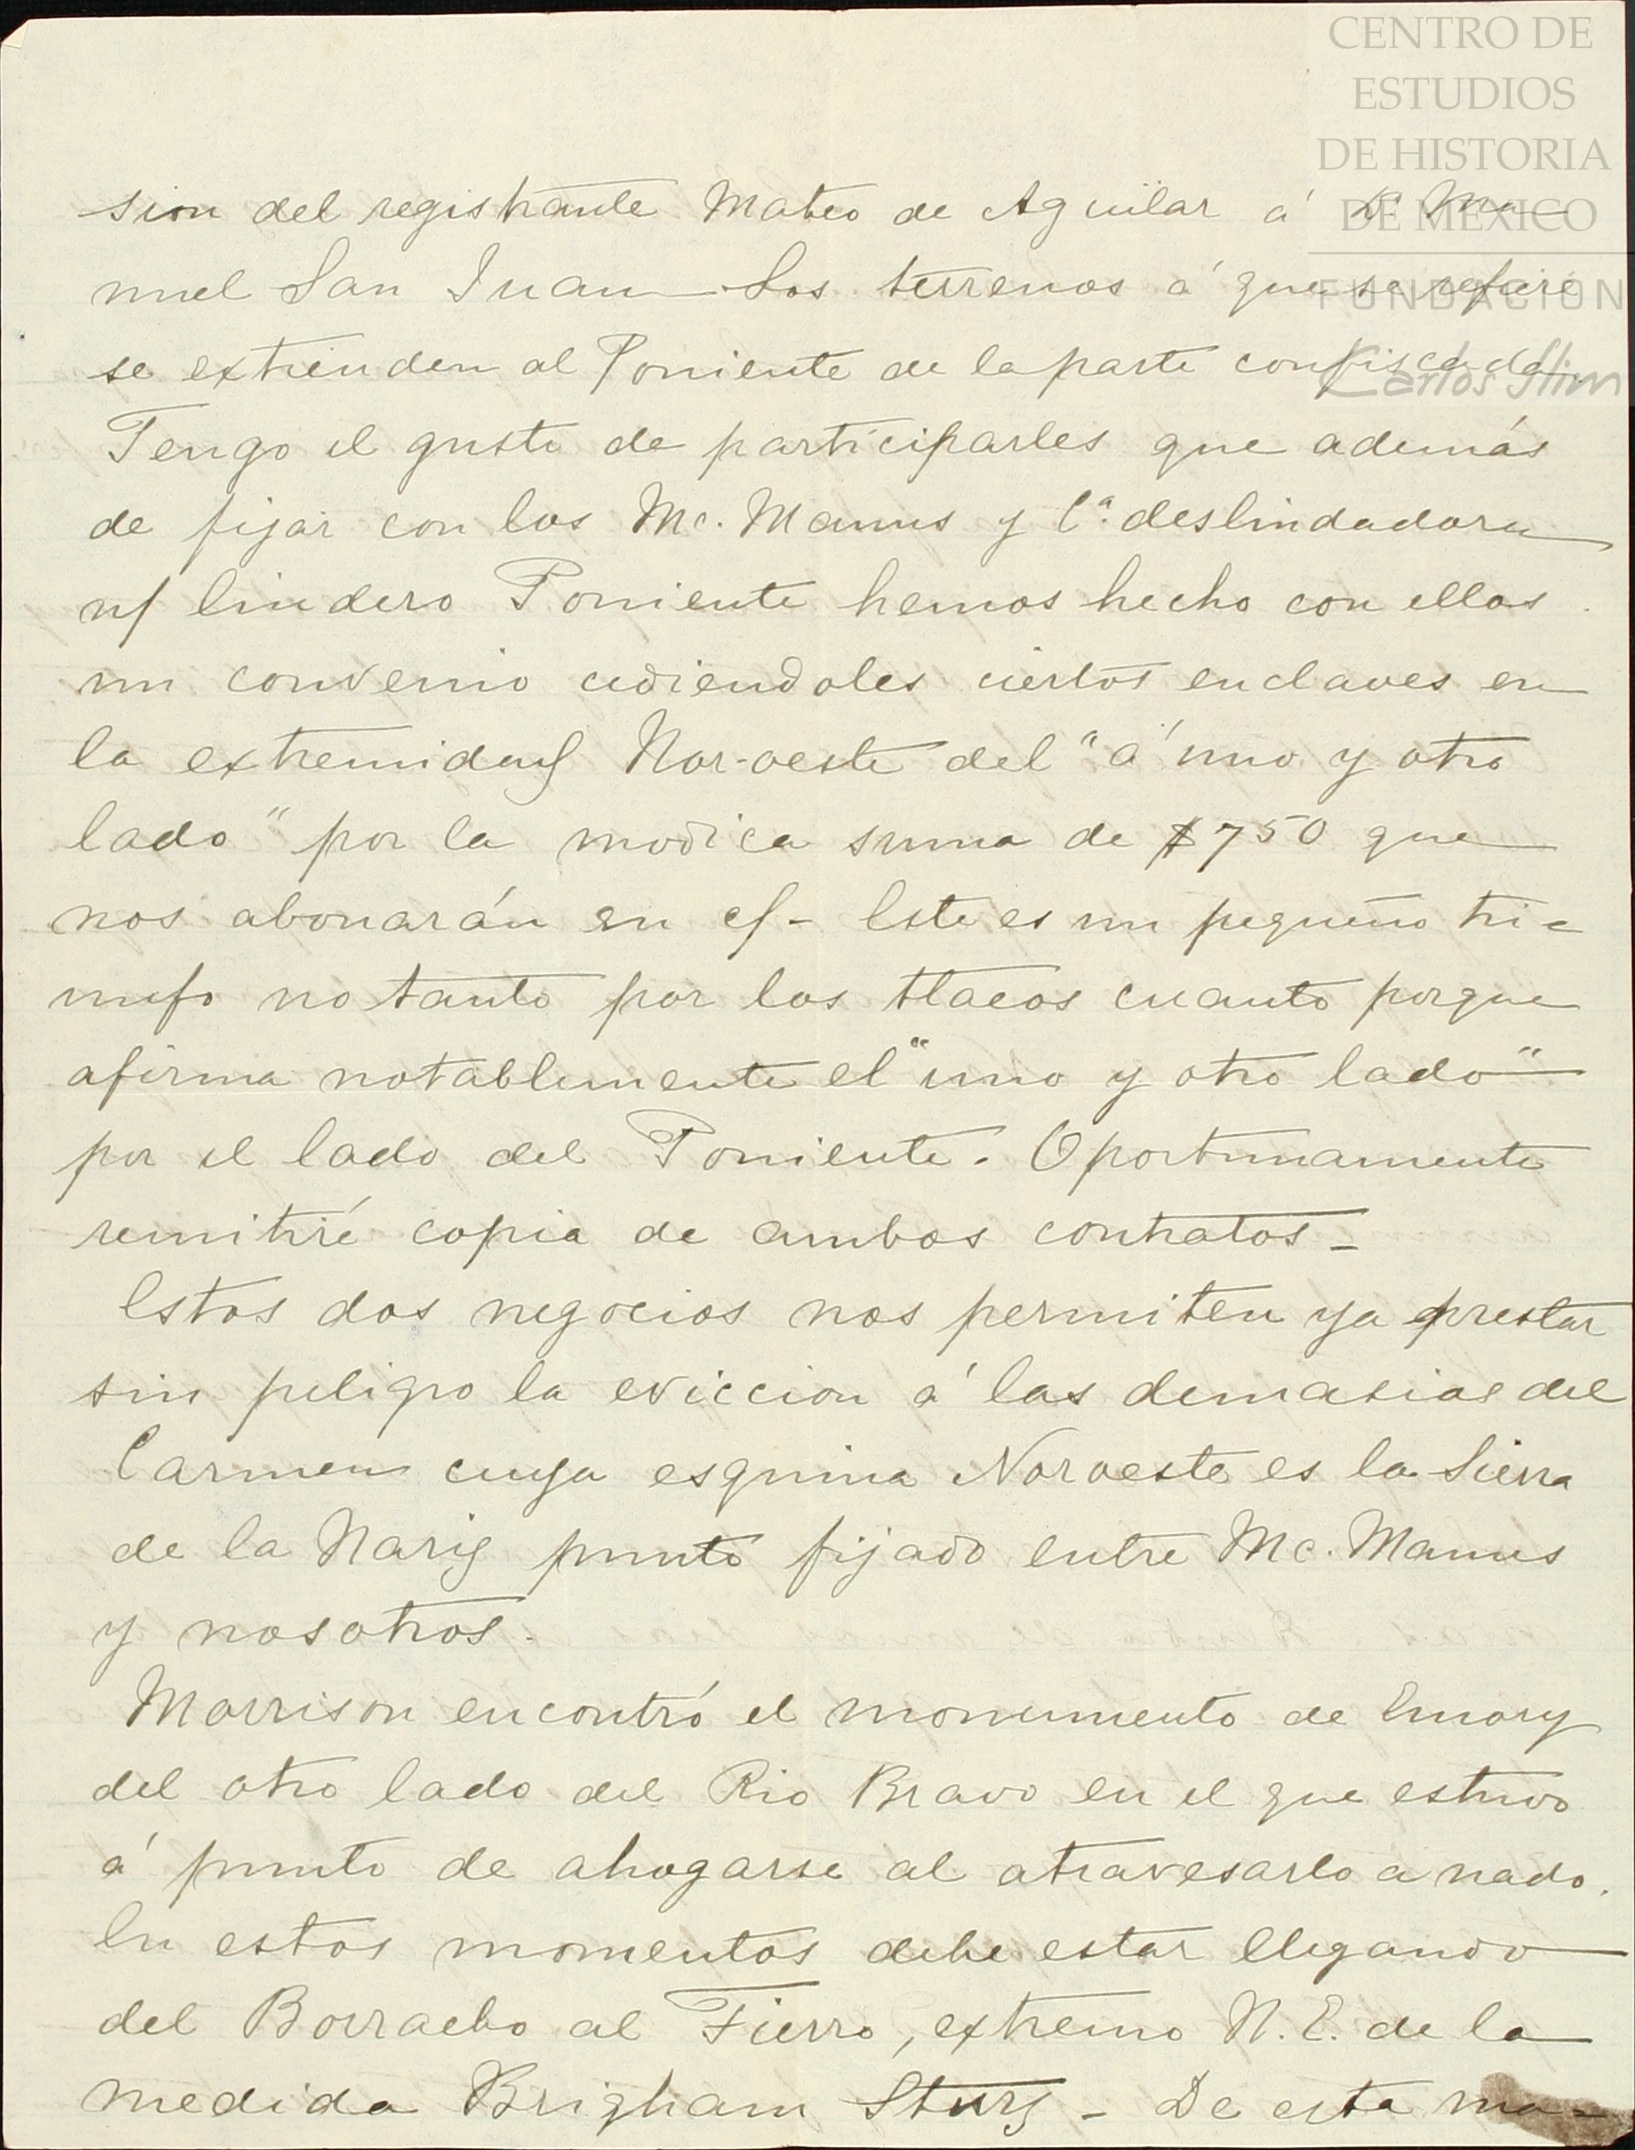 CENTRO DE
ESTUDIOS
DE HISTORIA
DE MEXICO
FUNDACION
Carlos Slim
sion del registrante Mateo de Aguilar á D. Ma-
nuel San Juan – Los terrenos á que se refiere
se extienden al Poniente de la parte confiscada
Tengo el gusto de participarles que además
de fijar con los Mc. Manus y Cª deslindadora
n/ lindero Poniente hemos hecho con ellos
un convenio cediendoles ciertos enclaves en
la extremidad Nor-oeste del "á uno y otro
lado" por la modica suma de $750 que
nos abonarán en ef- Este es un pequeño tri-
unfo no tanto por los tlacos cuanto porque
afirma notablemente el "uno y otro lado"
por el lado del Poniente. Oportunamente
remitiré copia de ambos contratos –
Estos dos negocios nos permiten ya prestar
sin peligro la eviccion á las demasias del
Carmen cuya esquina Noroeste es la Sierra
de la Nariz punto fijado entre Mc. Manus
y nosotros.
Morrison encontró el monumento de Emory
del otro lado del Rio Bravo en el que estuvo
á punto de ahogarse al atravesarlo a nado.
En estos momentos debe estar llegando
del Borracho al Fierro, extremo N.E. de la
medida Brigham Sturg – De esta ma-